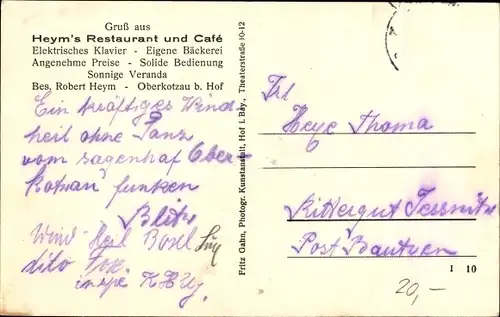 Gruß aus
Heym's Restaurant und Café
Elektrisches Klavier - Eigene Bäckerei
Angenehme Preise - Solide Bedienung
Sonnige Veranda
Bes. Robert Heym - Oberkotzau b. Hof
Ein kräftiges Wind
heil ohne
vom sagenhaf Ober-
kotzau funken
Blitz
Wind Heil
dito Fox.
Fritz Gahn, Photogr. Kunstanstalt, Hof i. Bay., Theaterstraße 10-12
Frl
Heye Thoma
Rittergut
Post Bautzen
1 10
20,-